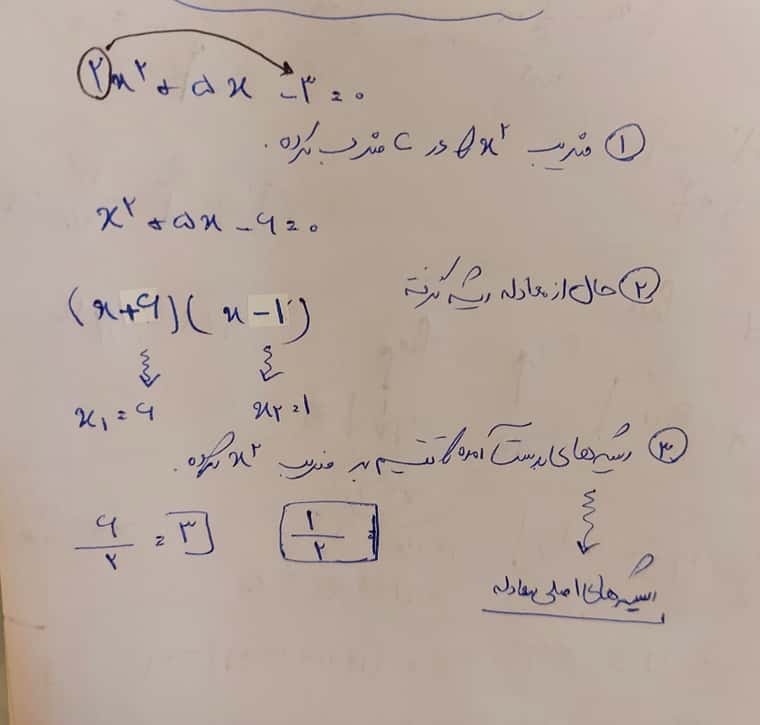 ۲x^۲ + ۵x - ۳ = ۰
① ضریب x^۲ را در c ضرب کرده.
x^۲ + ۵x - ۶ = ۰
② حال از معادله ریشه گرفته
(x+۶)(x-۱)
x₁ = ۶ x₂ = ۱
③ ریشه های بدست آمده را تقسیم بر ضریب x^۲ کرده.
۶/۲ = ۳ ۱/۲ =
ریشه های اصلی معادله